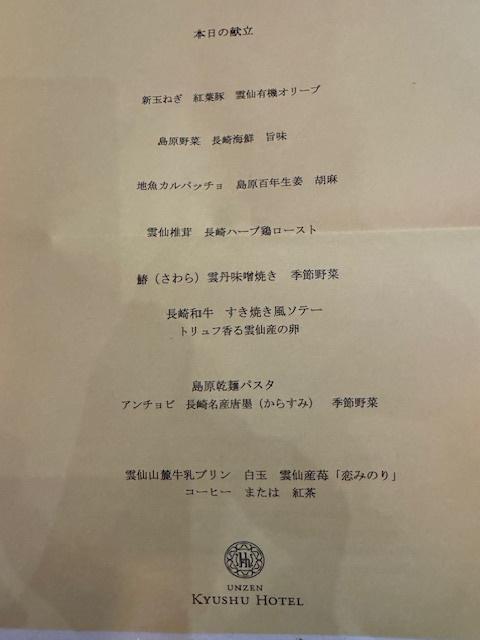 本日の献立
新玉ねぎ 紅葉豚 雲仙有機オリーブ
島原野菜 長崎海鮮 旨味
地魚カルパッチョ 島原百年生姜 胡麻
雲仙椎茸 長崎ハーブ鶏ロースト
鰆(さわら)雲丹味噌焼き 季節野菜
長崎和牛 すき焼き風ソテー
トリュフ香る雲仙産の卵
島原乾麺パスタ
アンチョビ 長崎名産唐墨(からすみ) 季節野菜
雲仙山麓牛乳プリン 白玉 雲仙産苺「恋みのり」
コーヒー または 紅茶
UNZEN
KYUSHU HOTEL